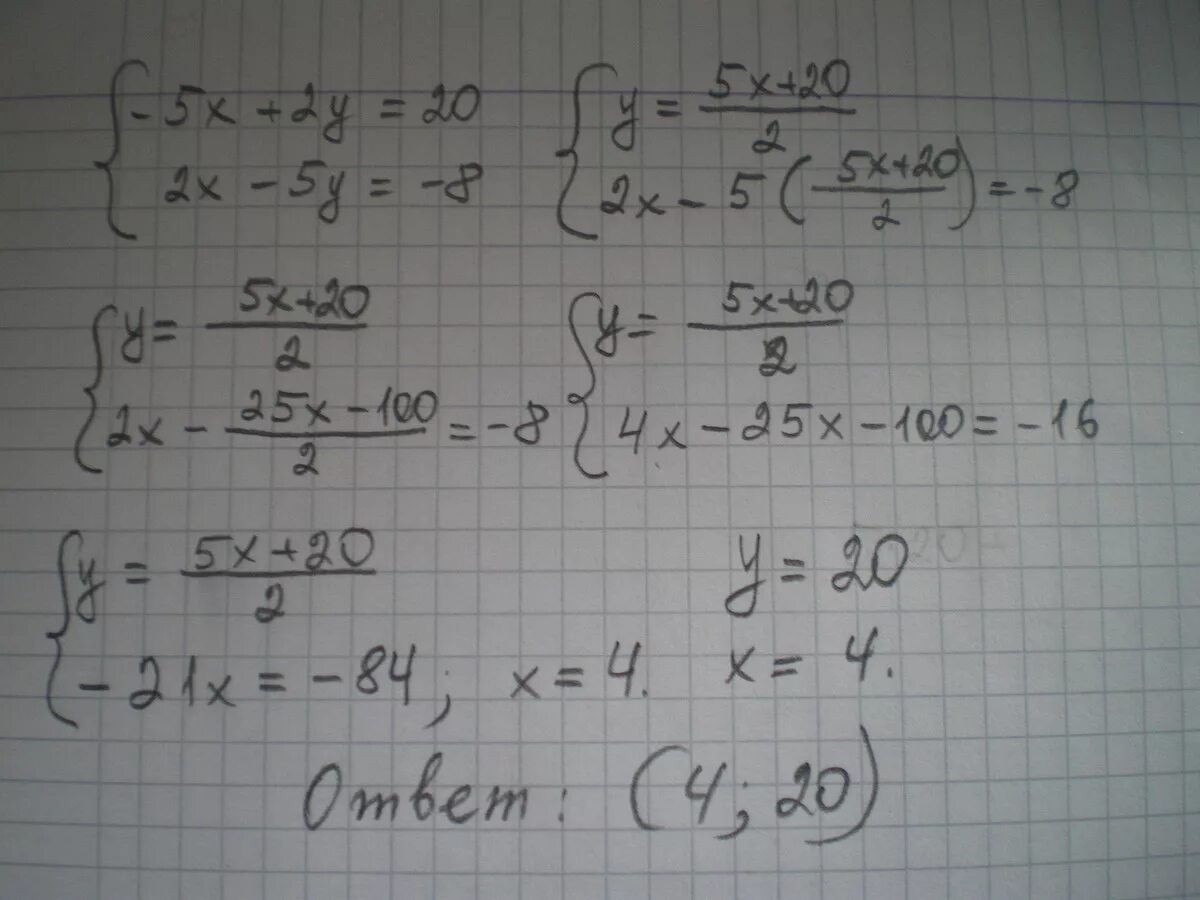 { -5x + 2y = 20
2x - 5y = -8
{ y = (5x+20)/2
2x - 5 ( (5x+20)/2 ) = -8
{ y = (5x+20)/2
2x - (25x-100)/2 = -8
{ y = (5x+20)/2
4x - 25x - 100 = -16
{ y = (5x+20)/2
-21x = -84; x = 4.
y = 20
x = 4.
Ответ: (4; 20)